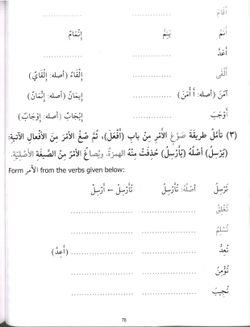 أَقَامَ ............ ............
أَتَمَّ يُتِمُّ إِتْمَامٌ
أَعَدَّ ............ ............
أَلْقَى ............ إِلْقَاءٌ (أصله: إِلْقَايٌ)
آمَنَ (أصله: أَ أْمَنَ) ............ إِيمَانٌ (أصله: إِئْمَانٌ)
أَوْجَبَ ............ إِيجَابٌ (أصله: إِوْجَابٌ)
(٣) تأمَّلْ طريقةَ صَوْغِ الأمْرِ مِنْ بابِ (أَفْعَلَ)، ثُمَّ صُغِ الأمْرَ مِنَ الأفعالِ الآتيةِ:
(يُرْسِلُ) أَصْلُهُ (يُأَرْسِلُ) حُذِفَتْ مِنْهُ الهمزةُ. ويُصاغُ الأمْرُ مِنَ الصِّيغةِ الأَصْلِيَّةِ.
Form الأمر from the verbs given below:
تُرْسِلُ أصْلُهُ: تُأَرْسِلُ تُأَرْسِلُ ← أَرْسِلْ
تُغْلِقُ ............ ............
تُنْزِلُ ............ ............
تُعِدُّ ............ ............ (أَعِدَّ)
تُؤْمِنُ ............ ............
تُجِيبُ ............ ............
78